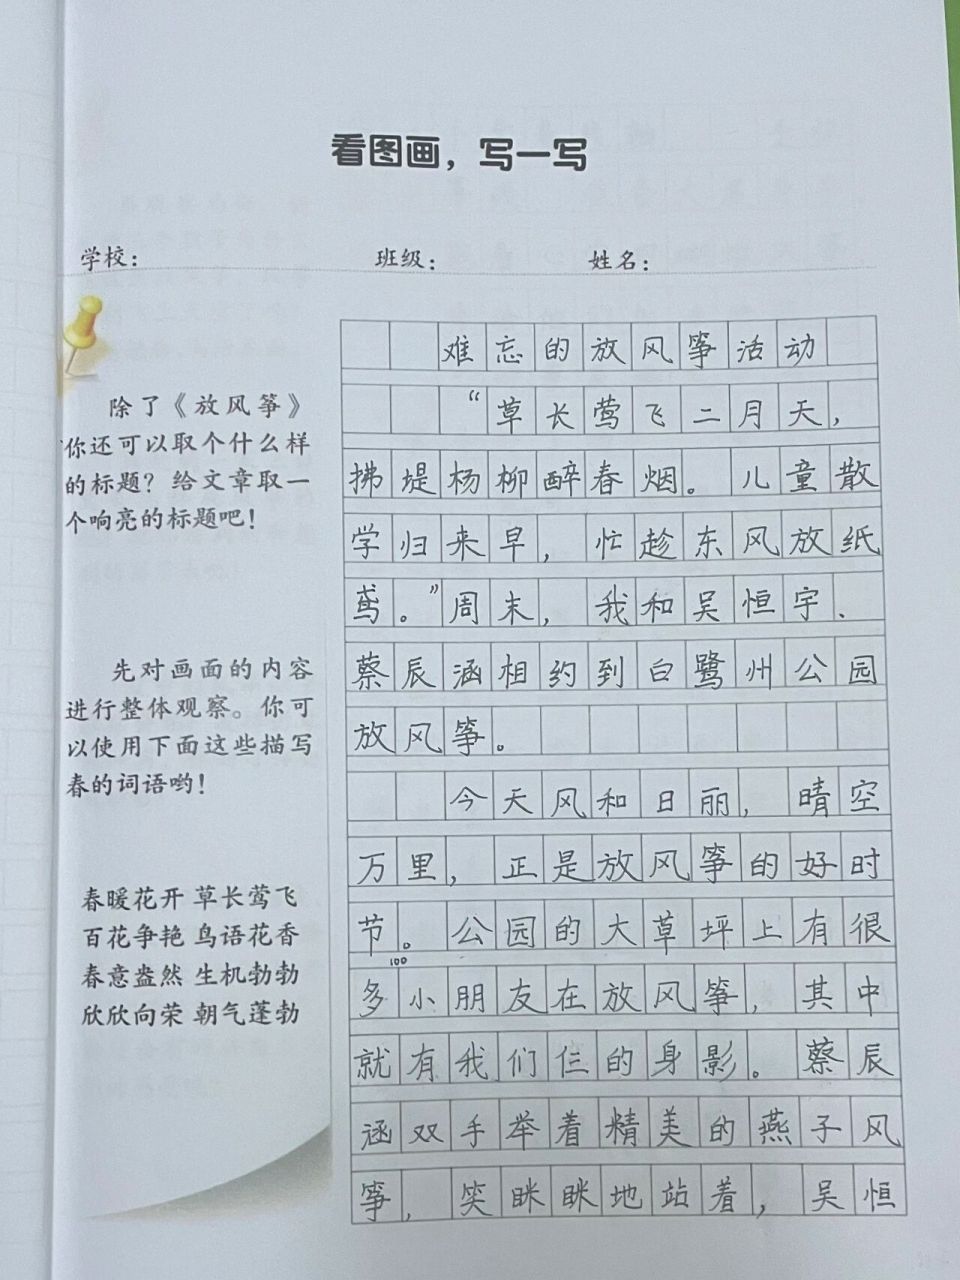 看图画，写一写
学校： 班级： 姓名：
除了《放风筝》
你还可以取个什么样
的标题？给文章取一
个响亮的标题吧！
先对画面的内容
进行整体观察。你可
以使用下面这些描写
春的词语哟！
春暖花开 草长莺飞
百花争艳 鸟语花香
春意盎然 生机勃勃
欣欣向荣 朝气蓬勃
难忘的放风筝活动
“草长莺飞二月天，
拂堤杨柳醉春烟。儿童散
学归来早，忙趁东风放纸
鸢。”周末，我和吴恒宇、
蔡辰涵相约到白鹭州公园
放风筝。
今天风和日丽，晴空
万里，正是放风筝的好时
节。公园的大草坪上有很
100
多小朋友在放风筝，其中
就有我们仨的身影。蔡辰
涵双手举着精美的燕子风
筝，笑眯眯地站着，吴恒